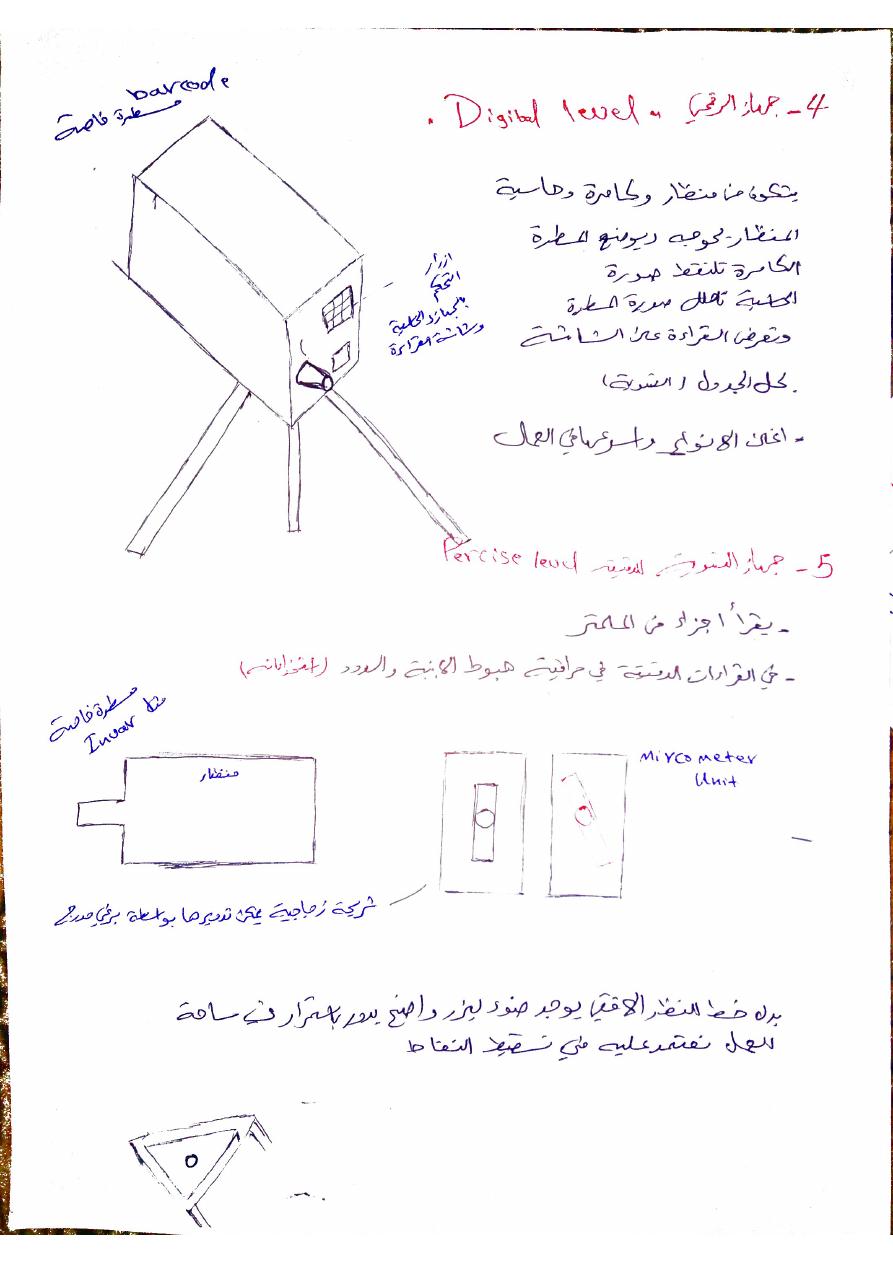 4- جهاز الرقمي " Digital level .
barcode
مسطرة خاصة
يتكون من منظار وكامرة وحاسبة
المنظار يوجه ديوضع المسطرة
الكامرة تلتقط صورة
الحاسبة تحلل صورة المسطرة
وتعرض القراءة على الشاشة
لحل الجدول (التسوية)
- اغلى الانواع واسرعها في العمل
ازرار
التحكم
بالجهاز والحاسبة
وشاشة القراءة
5- جهاز التسوية الدقيقة Percise level
- يقرأ اجزاء من الملمتر
- في القراءات الدقيقة في مراقبة هبوط الابنية والسدود
مسطرة خاصة
Invar
منظار
Mircometer
Unit
شريحة زجاجية يمكن تدويرها بواسطة برغي مدرج
بدل خط النظر الافقي يوجد ضوء ليزر واضح يدور باستمرار في ساحة
العمل نعتمد عليه في تسقيط النقاط